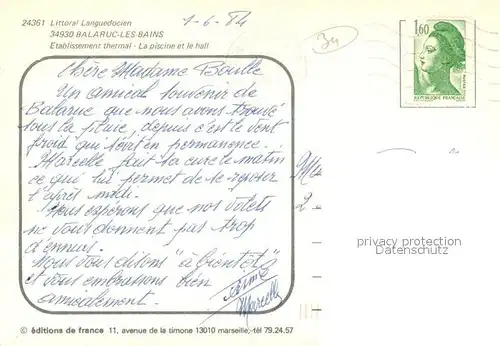 24361 Littoral Languedocien
34930 BALARUC-LES BAINS
Etablissement thermal - La piscine et le hall
1-6-84
34
1,60
REPUBLIQUE FRANÇAISE
Chère Madame Boulle
Un amical souvenir de
Balaruc que nous avons trouvé
sous la pluie, depuis c'est le vent
froid qui sévit en permanence.
Marcelle fait la cure le matin
ce qui lui permet de se reposer
l'après midi.
Nous espérons que nos volets
ne vous donnent pas trop
d'ennuis.
Nous vous disons "à bientôt"
et vous embrassons bien
amicalement.
Marcelle
2
privacy protection
Datenschutz
© éditions de france 11, avenue de la timone 13010 marseille, tél 79.24.57